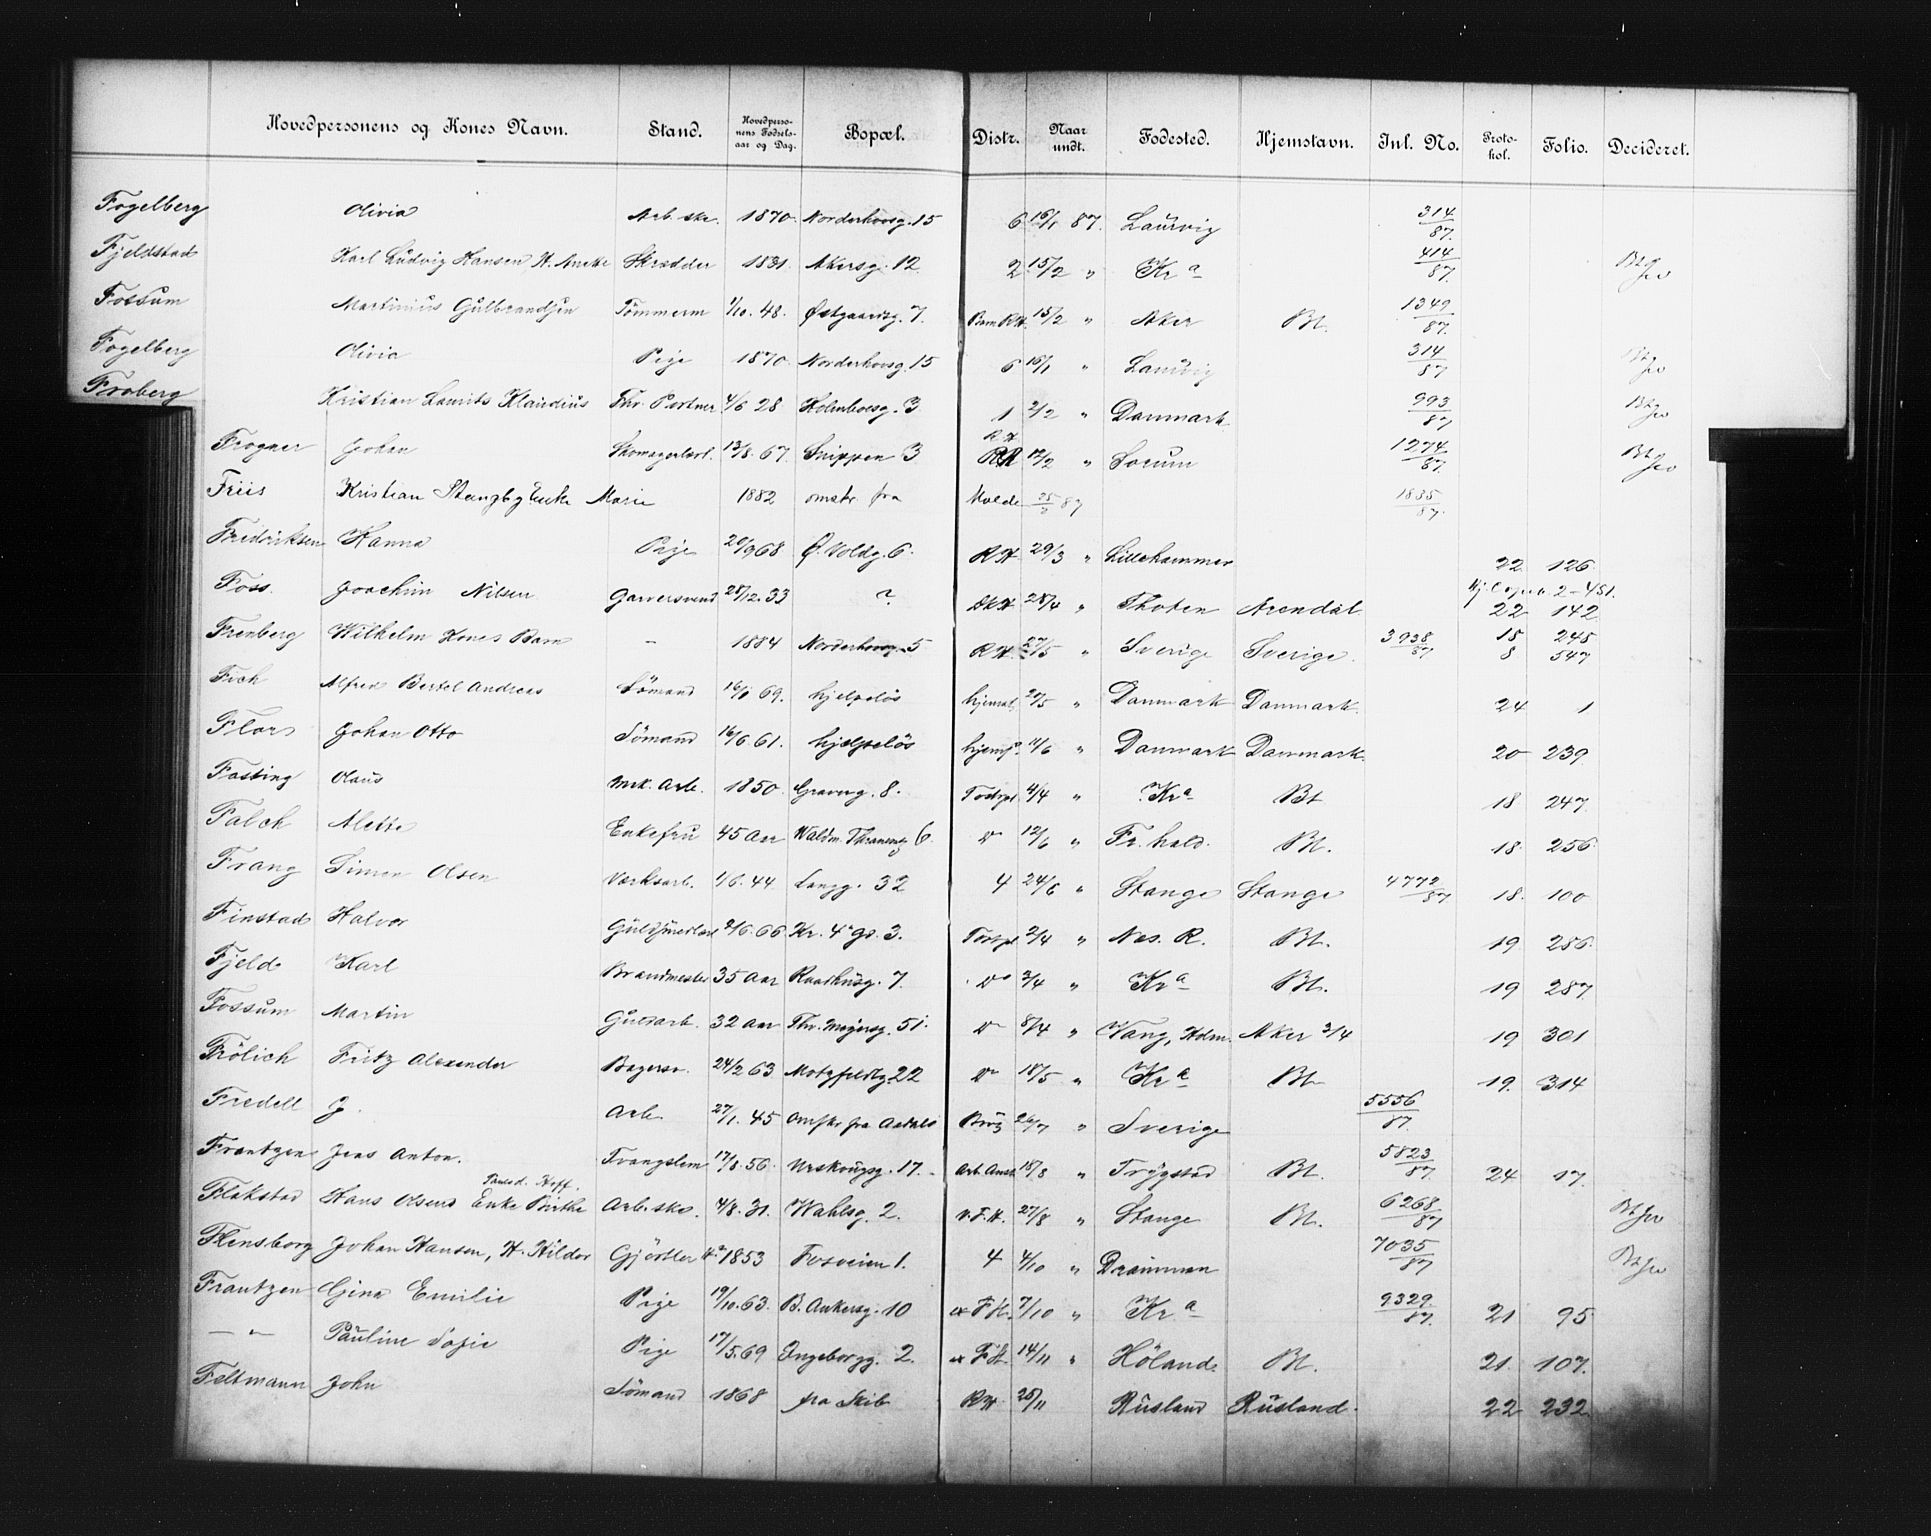 Hovedpersonens og Kones Navn. Stand. Hovedpersonens Fødselsaar og Dag. Bopæl. Distr. Naar undt. Fødested. Hjemstavn. Inl. No. Protokol. Folio. Decideret.
Fogelberg Olivia Arb. ske. 1870. Norderhovsg. 15 6 16/1 87. Laurvig 314/87.
Fjeldstad Karl Ludvig Hansen, H. Anette Skrædder 1831. Akersg. 12 2 15/2 " Kr a 414/87.
Fossum Martinius Gulbrandsen Tømmerm 1/10. 48. Østgaardsg. 7. 15/2 " Aker Bt. 1349/87.
Fogelberg Olivia Pige 1870. Norderhovsg. 15 6 16/1 " Laurvig 314/87
Froberg Kristian Laurits Klaudius Thr. Portner 4/6 28 Holmboesg. 3 1 2/2 " Danmark 993/87
Frogner Johan Skomagerlærl. 13/8. 67. Snippen 3 R H 12/2 " Sørum 1274/87.
Friis Kristian Stangby Enke Marie 1882 omskr. fra Molde 87 1835/87.
Fredriksen Hanna Pige 20/9 68 Ø. Voldg. 6. R H. 29/3 " Lillehammer 22 126
Foss. Joachim Nilsen Garversvend 28/12. 33 ? 28/4 " Thoten Arendal 22 142
Frenberg Wilhelm Kones Barn – 1884 Norderhovsg. 5 R H. 27/5 " Sverige Sverige. 3938/87 18 245
8 547
Fich Alfred Bertel Andreas Sømand 69. hjelpeløs 20/5 " Danmark Danmark. 24 1
Flor Johan Otto Sømand 16/6. 61. hjælpeløs 11/6 " Danmark Danmark. 20 239
Fasting Olaus Mek. Arb. 1850. Graverg. 8. Tostrpl 4/4 " Kr a Bt 18 247.
Falch Alette Enkefru 45 Aar Waldm. Thraneng 6. Do 12/6 " Fr. hald. Bt. 18. 256
Frang Simen Olsen Værksarb. 1/6. 44. Langg. 32 4 24/6 " Stange Stange 4772/87 18. 100
Finstad Halvor Guldsmedlærl 9/6. 66 Kr. 4des gd. 3. Tostrpl 2/4 " Nes. R. Bt. 19 256
Fjeld Karl Brandmester 35 Aar Raadhusg. 7. Do 2/4 " Kr a Bt. 19 287.
Fossum Martin Gasarb. 32 Aar Thv. Meyersg. 51. Do 8/4 " Vang, Hdm. Aker 3/4 19 301
Frölich Fritz Alexander Bagersv. 24/2 63 Motzfeldtg. 22 Do 18/5 " Kr a Bt 19. 314
Fredell J. Arb. 27/1. 45 Omskr. fra Aadals Brug 26/7 " Sverige 5556/87.
Frantzen Jens Anton. Tvangslem 17/8. 56. Urskougsg. 17. Arb. Anst. 18/8 " Trygstad Bt. 5823/87. 24 17.
Flakstad Hans Olsens Enke Birthe Paulsd. Hoff. Arb. ske. 4/8. 31. Wahlsg. 2. V. F. H. 27/8 " Stange Bt. 6268/87
Flensborg Johan Hansen, H. Hildor Gjørtler 1853 Fosveien 1. 4 4/10 " Drammen 7035/87
Frantzen Gina Emilie Pige 19/10. 63. B. Ankersg. 10 7/10 " Kr a 9329/87. 21 95
– " – Pauline Sofie Pige 17/5. 69 Engeborgg. 2. 14/11 " Höland. Bt. 21. 107.
Feltmann John Sømand 1868 fra Skib R H 25/11 Rusland Rusland. 22 232.